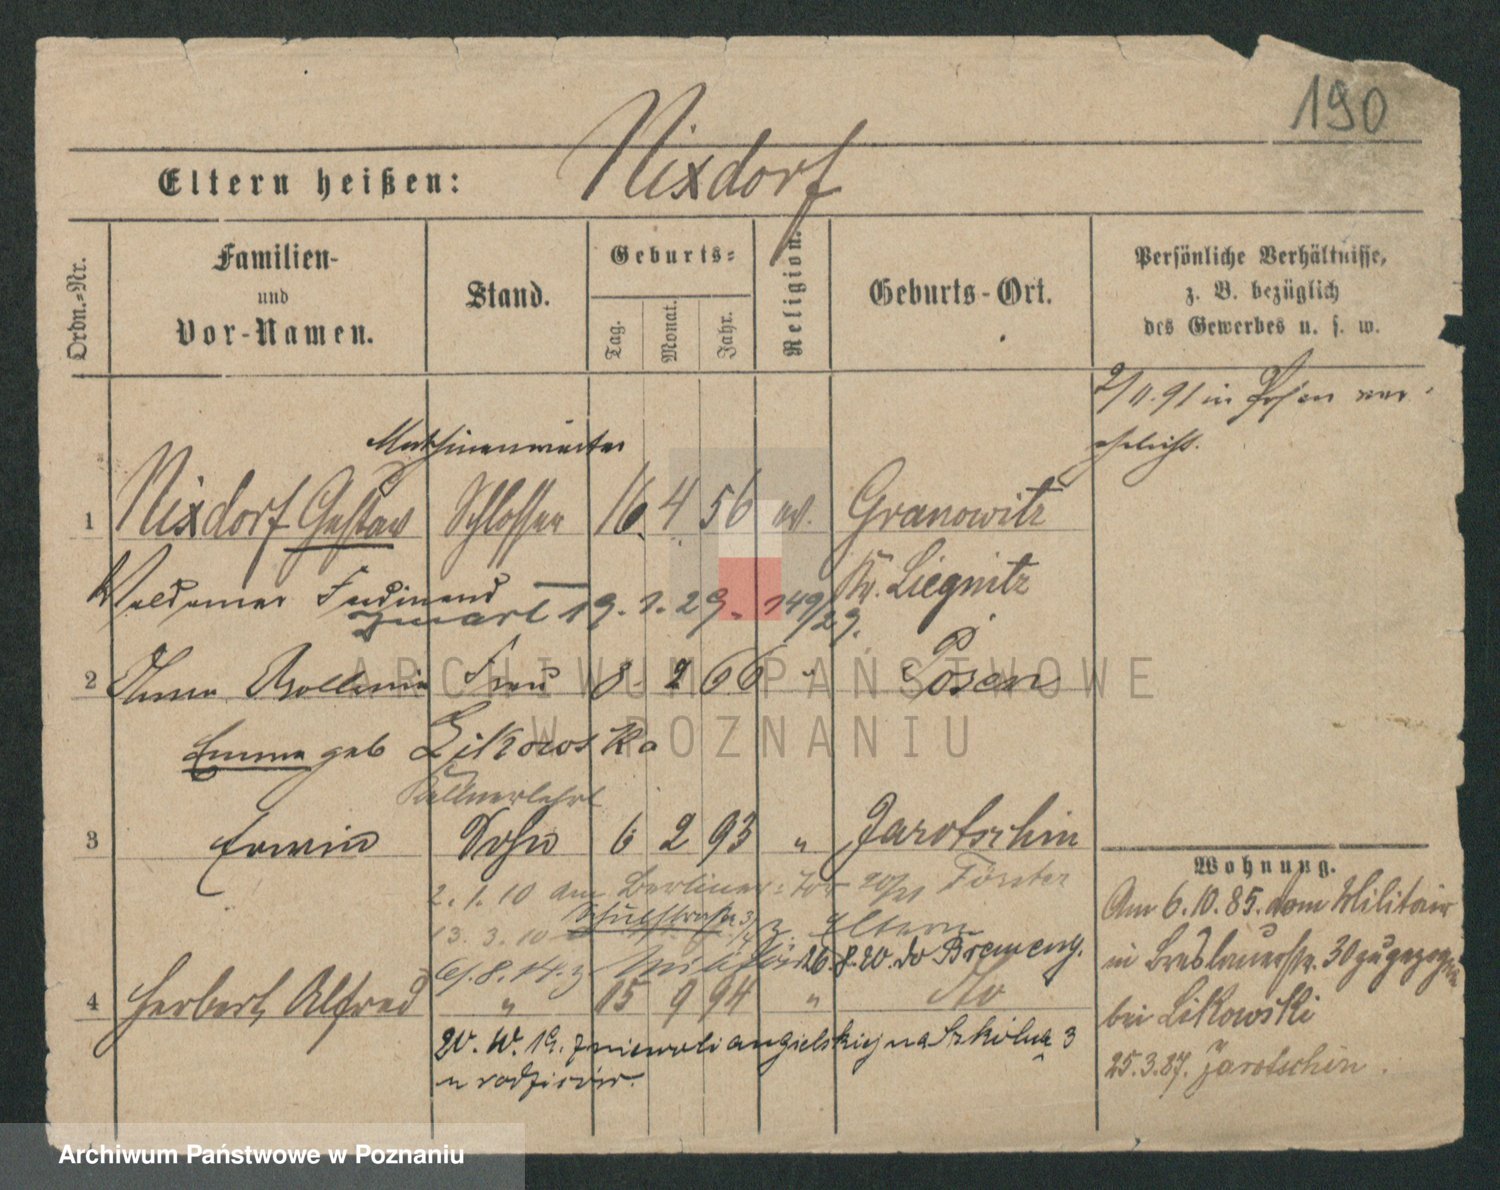 190
Eltern heißen: Nixdorf
Ordn.-Nr.
Familien-
und
Vor-Namen.
Stand.
Geburts-
Tag.
Monat.
Jahr.
Religion.
Geburts-Ort.
Persönliche Verhältnisse,
z. B. bezüglich
des Gewerbes u. s. w.
2/11.91 in Posen ver-
ehelicht.
Maschinenwärter
1 Nixdorf Gustav Schlosser 16. 4 56 ev. Granowitz
Waldemar Ferdinand Kr. Liegnitz
zmarł 19. 1. 29. 149/29.
2 Anna Frau 8. 2 66 " Posen
Emma geb Likowska
Kellnerlehrl
3 Erwin Sohn 6 2 93 " Jarotschin
2. 1. 10 am Berliner-Tor 20/21 Förster
13. 3. 10 Schulstraße 3 z. Eltern
8. 14. z Militär 26. 8. 20. do Bremeng.
4 Herbert Alfred " 15 9 94 " do
20. 19. z niewoli angielskiej na Szkolną 3
u rodziców.
Wohnung.
Am 6.10.85. vom Militair
in Breslauerstr. 30 zugezogen
bei Likowski
25.3.87. Jarotschin.
ARCHIWUM PAŃSTWOWE
W POZNANIU
Archiwum Państwowe w Poznaniu